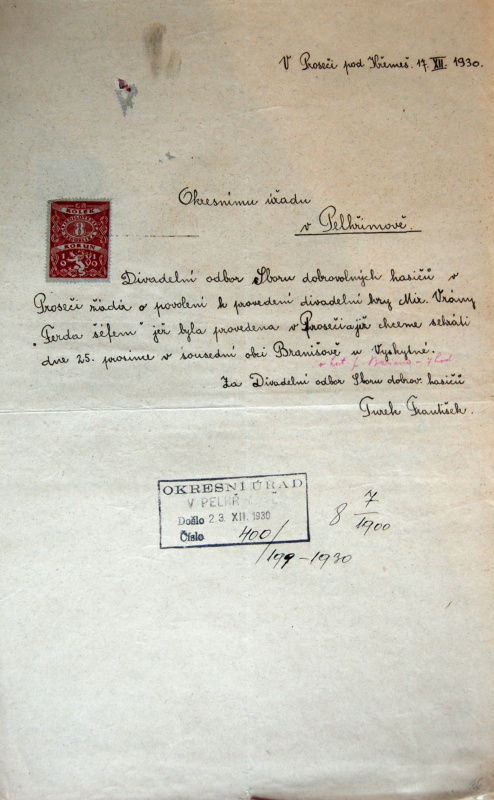 V Proseči pod Křemeš. 17. XII. 1930.
Okresnímu úřadu
v Pelhřimově.
KOLEK
8
KORUN
Divadelní odbor Sboru dobrovolných hasičů v
Proseči žádá o povolení k provedení divadelní hry Mir. Vrány
"Ferda šéfem" jež byla provedena v Proseči a již chceme sehráti
dne 25. prosince v sousední obci Branišově u Vyskytné.
Za Divadelní odbor Sboru dobrov. hasičů
Turek František.
OKRESNÍ ÚŘAD
V PELHŘ
Došlo 23. XII. 1930
Číslo 400/
/199-1930
8 7/1900